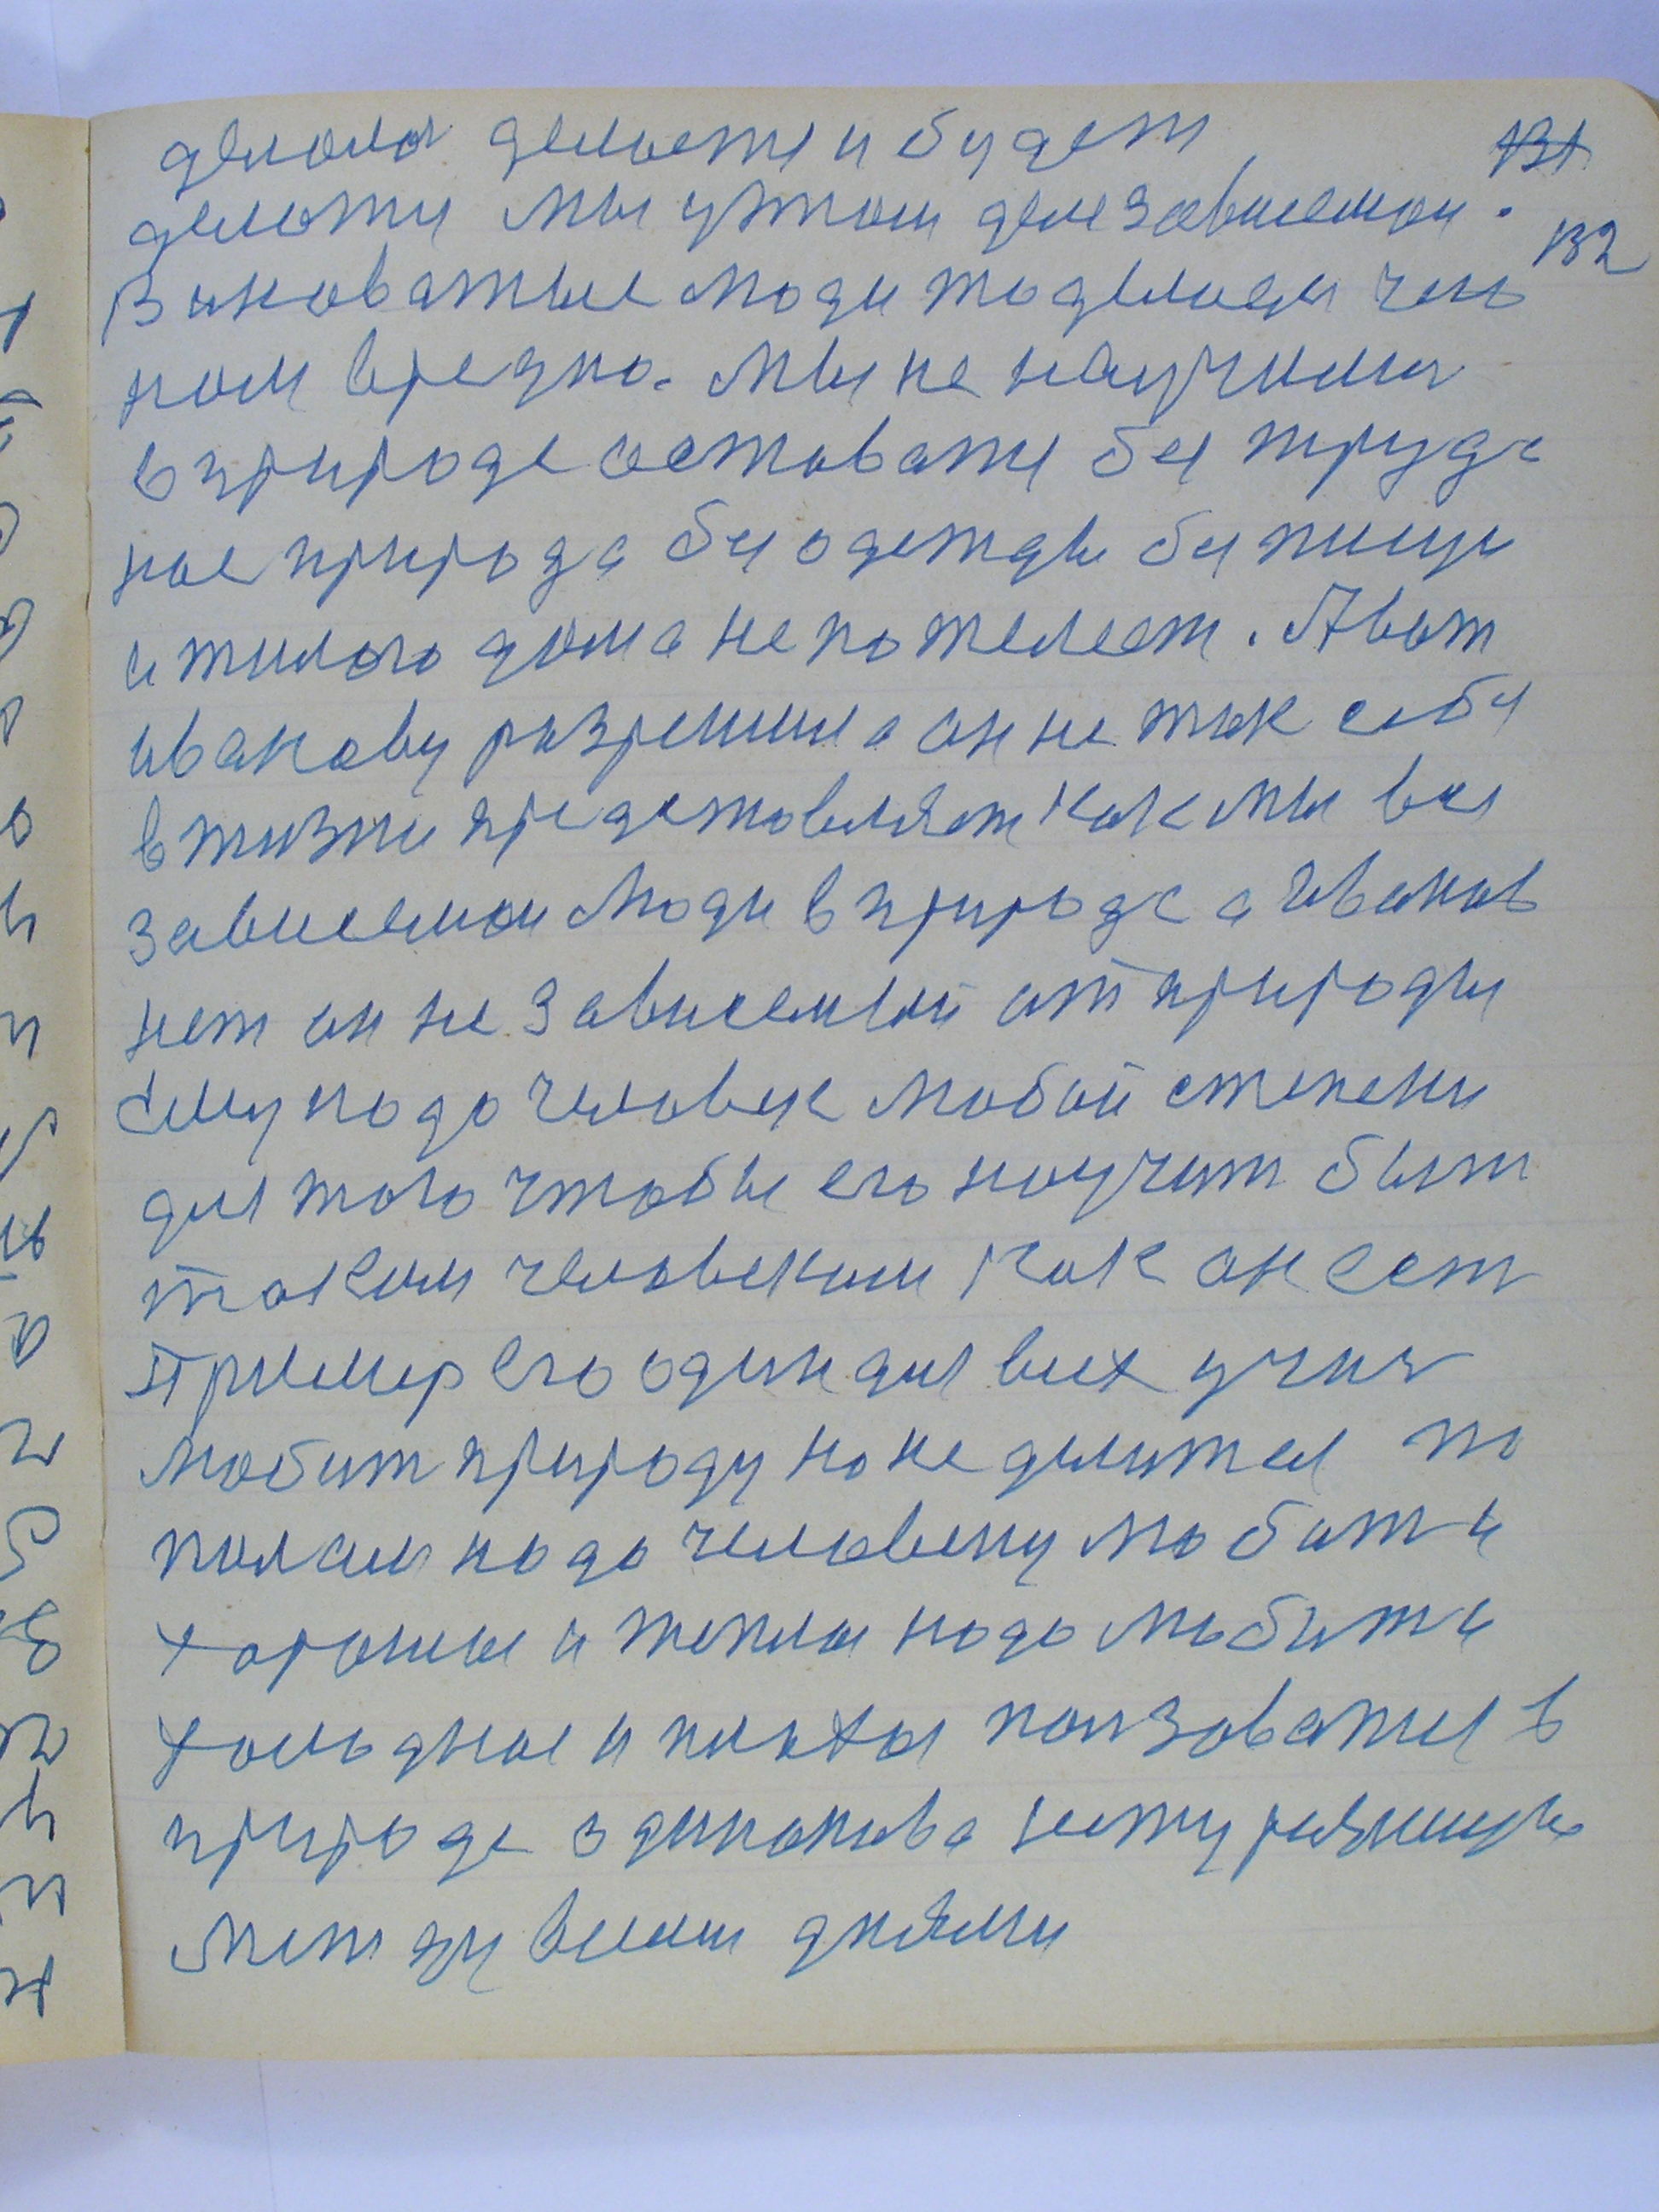 делола делаети и будет
131
делоти мы утом деле зовисемои.
132
Виноватые люди то делоеи чего
ном вредно. Мы не научимси
в природе оставати без трудо
ное природа без одежды без пищи
и жилого дома не пожелеет. А вот
Иванову разрешила он не так себе
в жизни представляет как мы все
зависемои люди в природе а Иванов
нет он не зависемый от природы
Ему надо человек любой степени
для того чтобы его научит быт
таким человеком как он ест
Пример его один для всех учис
любит природу но не делится по
полам надо человеку любит и
хорошое и теплои надо любит и
холодное и плохои ползоватис в
природе одиноково нету разницы
между всеми днями